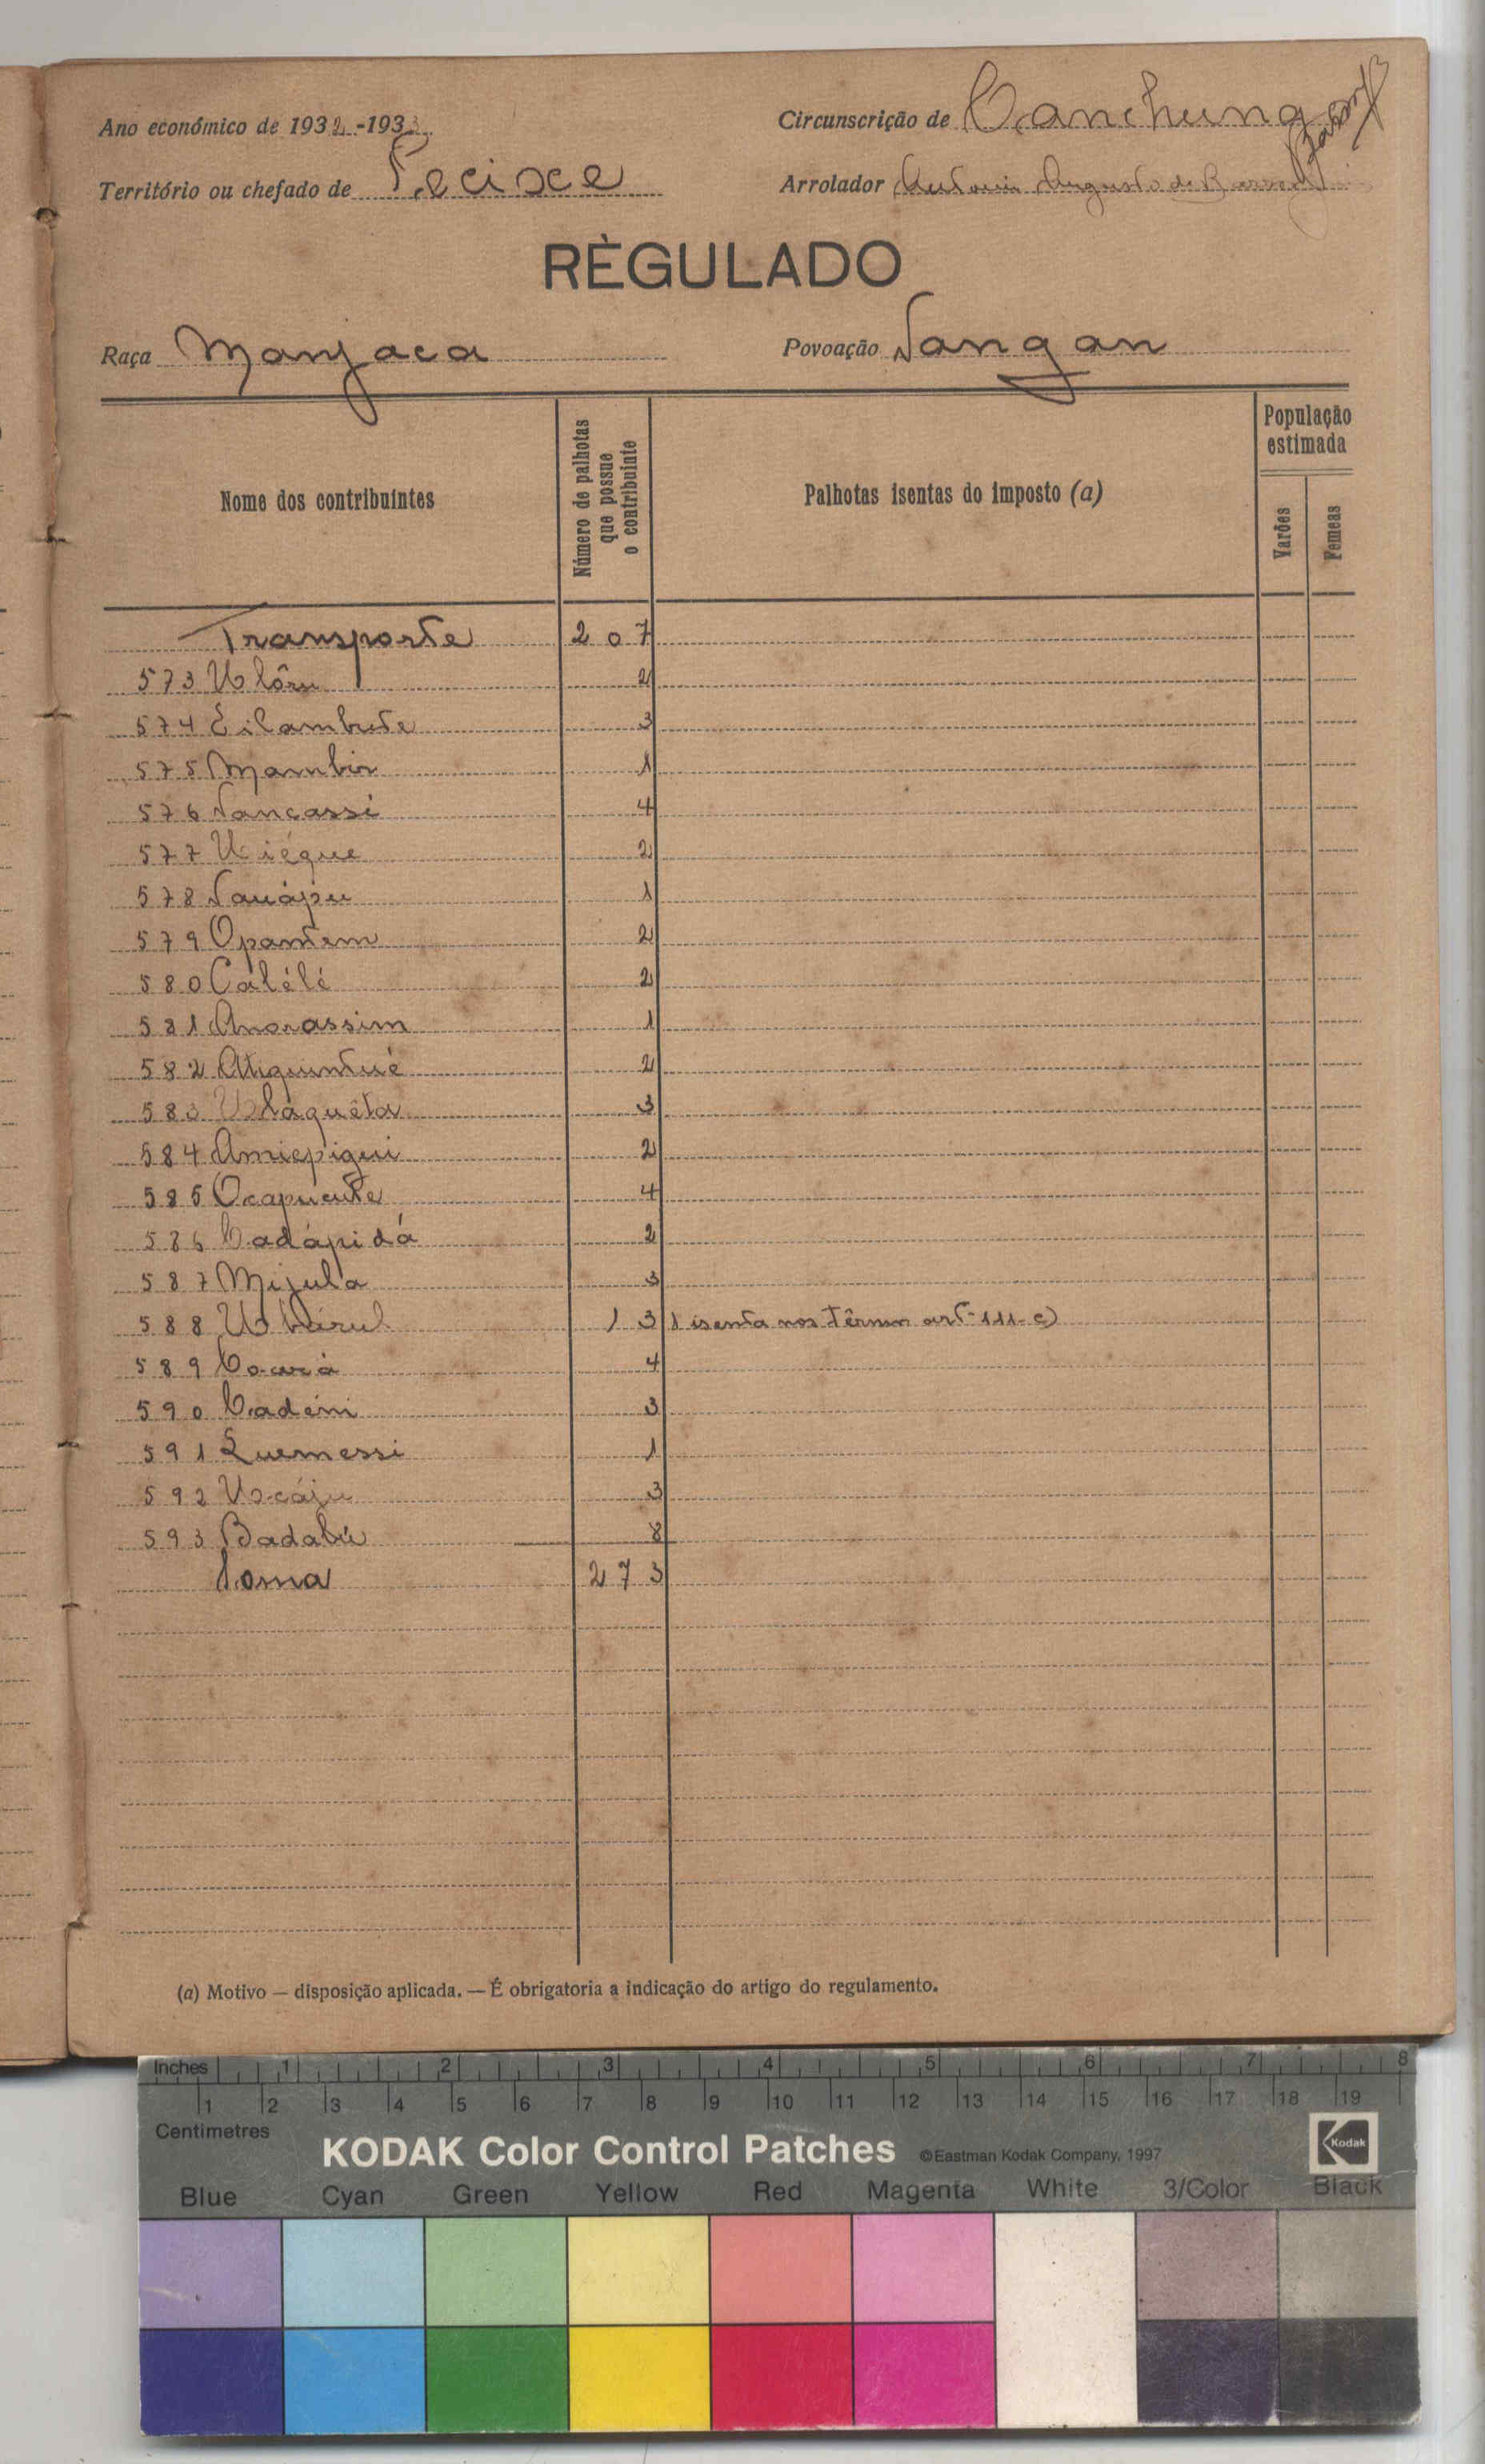 Ano económico de 1932-1933.
Circunscrição de Canchungo
Território ou chefado de Pecixe
Arrolador Antonio Augusto de Barros
RÈGULADO
Raça Manjaca
Povoação Sangan
Nome dos contribuintes
Número de palhotas que possue o contribuinte
Palhotas isentas do imposto (a)
População estimada
Varões
Femeas
Transporte 207
573 Ulôm 2
574 Eilambute 3
575 Mambir 1
576 Nancassi 4
577 Uiégue 2
578 1
579 Opantem 2
580 Calélé 2
581 Anorassim 1
582 2
583 3
584 Amiepigui 2
585 4
586 Cadápidá 2
587 Mijula 3
588 ) 3 1 isenta nos têrmos art-111-c)
589 4
590 Cadéni 3
591 Quemessi 1
592 3
593 Badabú 8
Soma 273
(a) Motivo — disposição aplicada. — É obrigatoria a indicação do artigo do regulamento.
Inches 1 2 3 4 5 6 7 8
1 2 3 4 5 6 7 8 9 10 11 12 13 14 15 16 17 18 19
Centimetres
KODAK Color Control Patches ©Eastman Kodak Company, 1997 Kodak
Blue Cyan Green Yellow Red Magenta White 3/Color Black